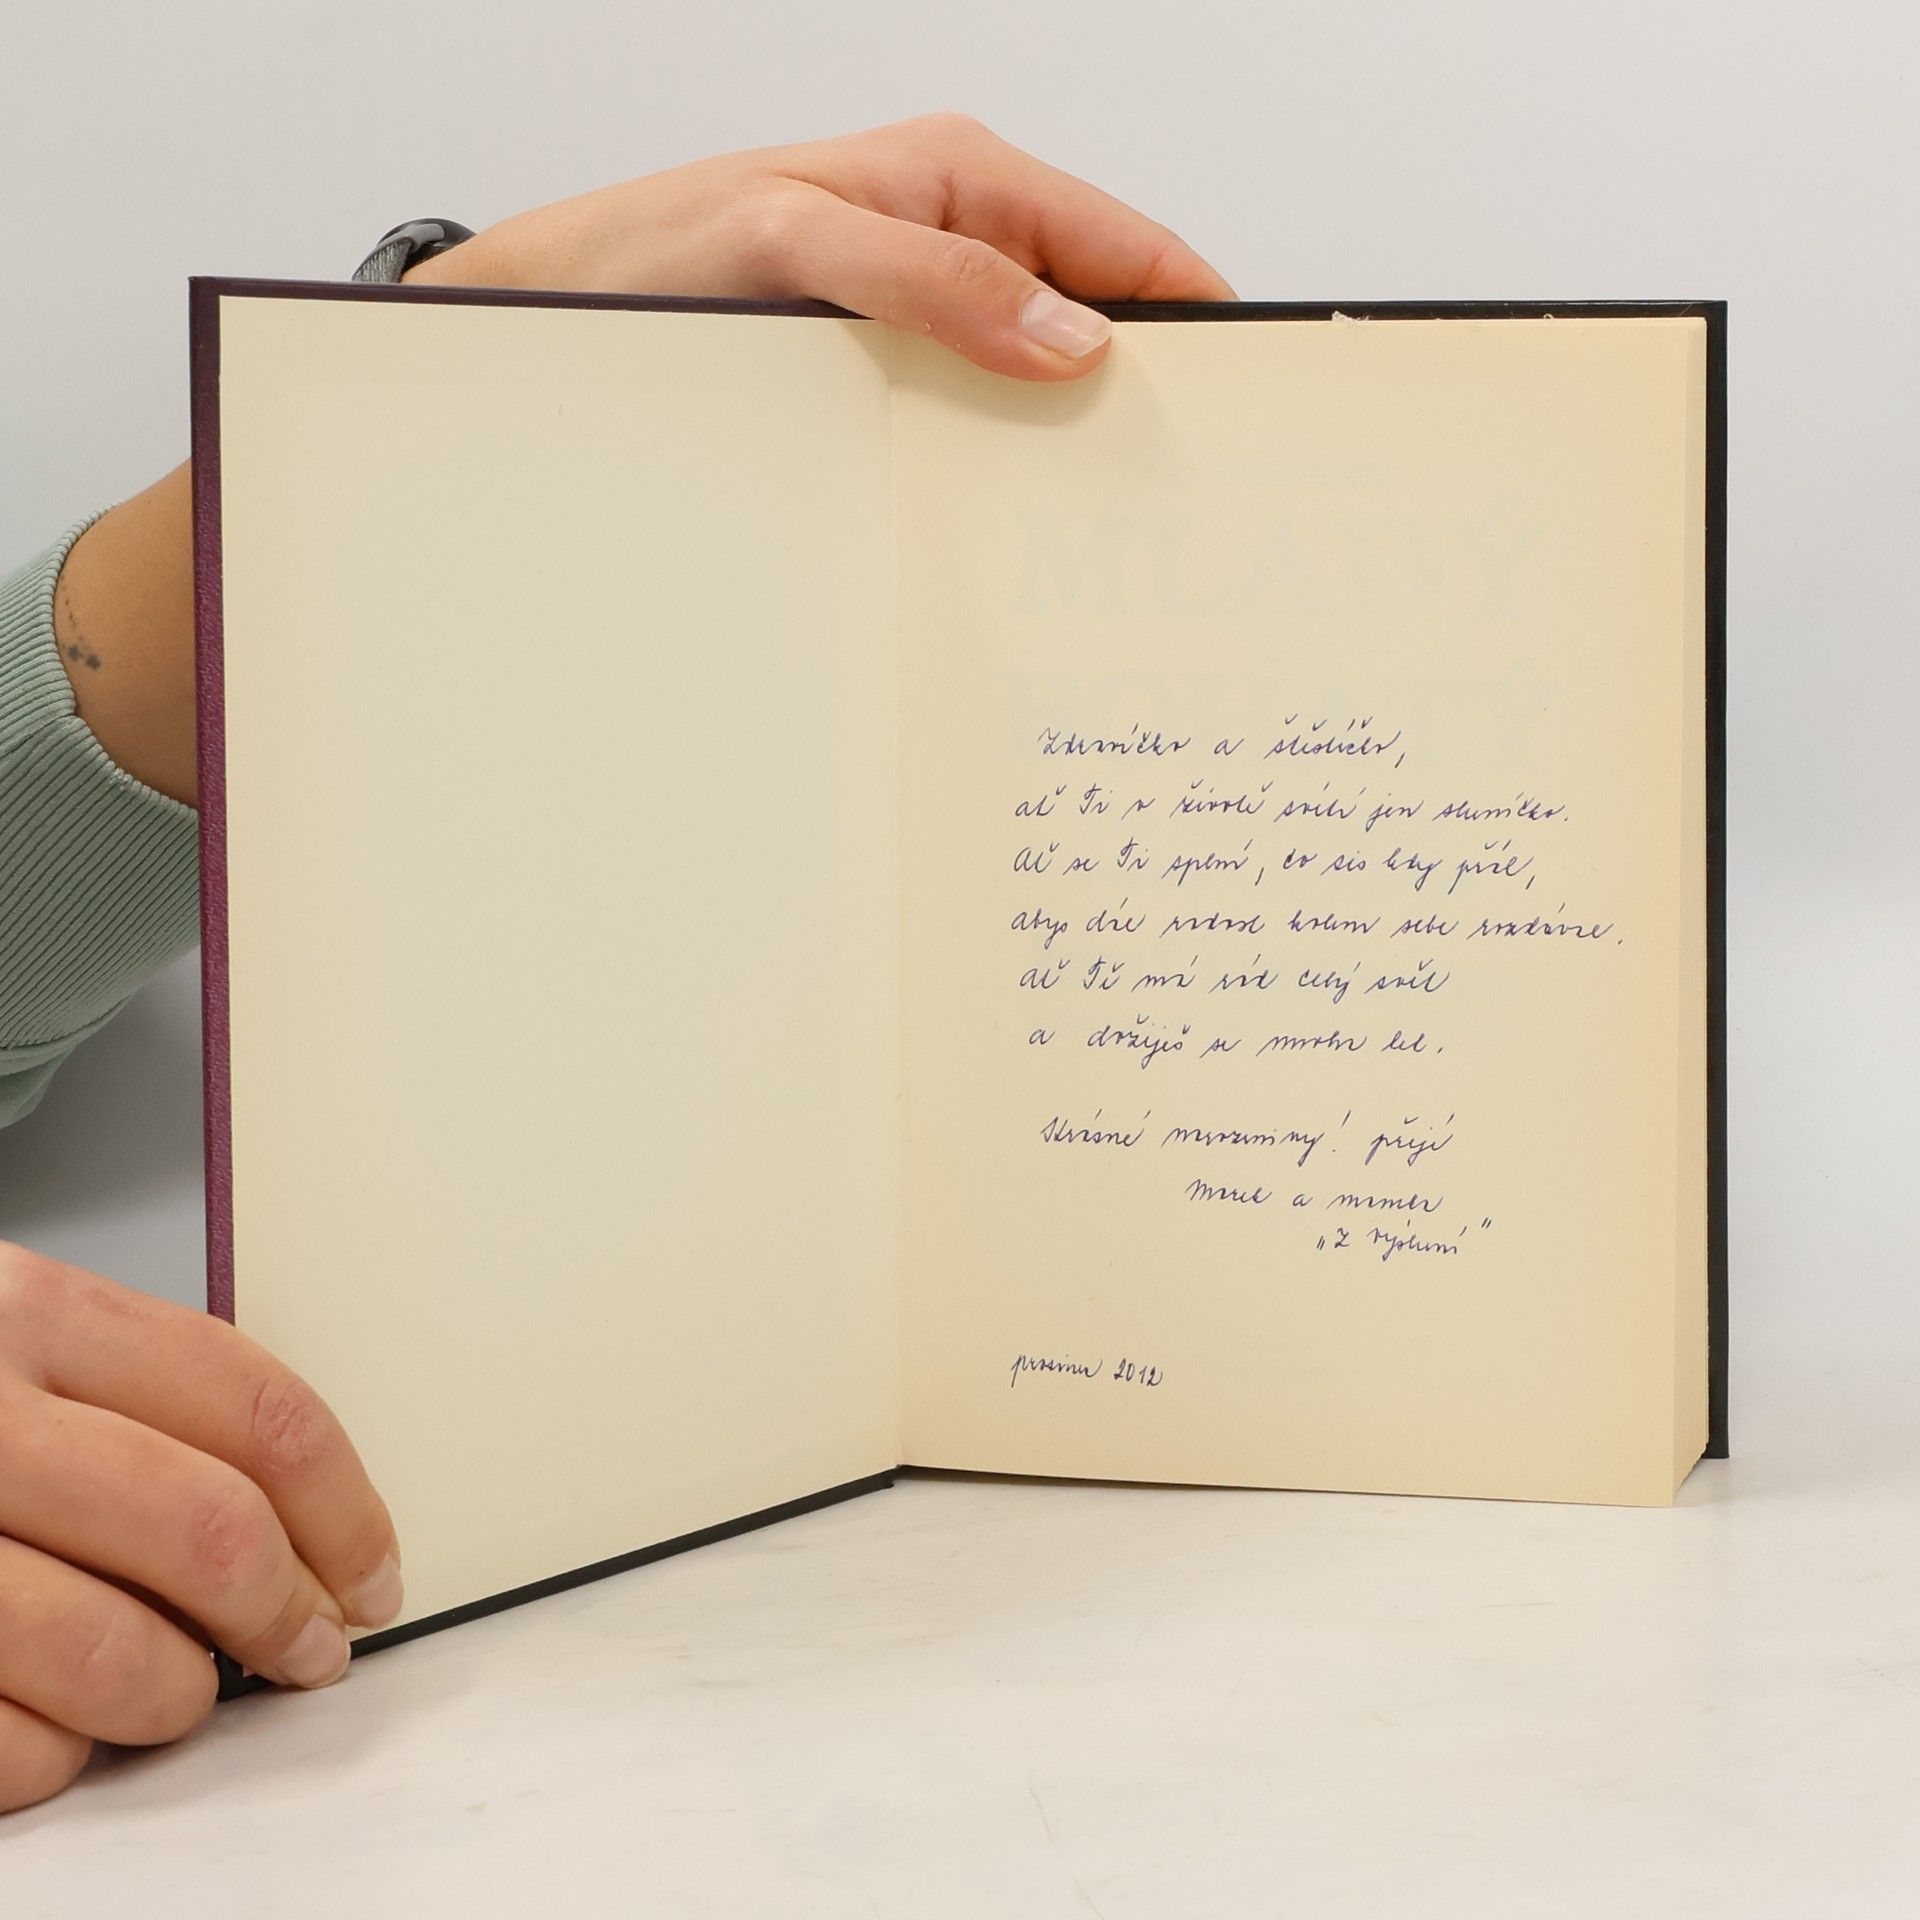 Zdravíčko a štěstíčko,
ať Ti v životě svítí jen sluníčko.
Ať se Ti splní, co sis kdy přál,
abys dál radost kolem sebe rozdával.
Ať Tě má rád celý svět
a dožiješ se mnoha let.
Krásné narozeniny! přejí
Marek a mamka
„Z výsluní"
prosinec 2012